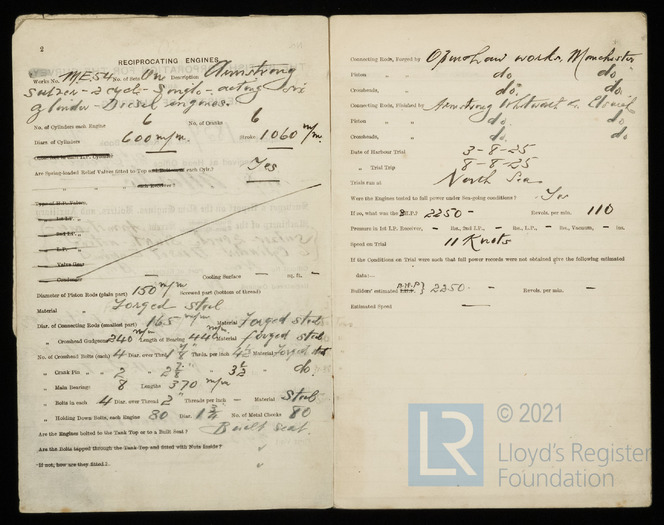 2
RECIPROCATING ENGINES.
Works No. M.E.54 No. of Sets One Description Armstrong
Sulzer - 2 cycle - Single - acting six
cylinder - Diesel engines.
No. of Cylinders each Engine 6 No. of Cranks 6
Diars. of Cylinders 600 m/m. Stroke 1060 m/m.
Are Spring-loaded Relief Valves fitted to Top and Bottom each Cylr.? Yes
" " each Receiver?
Type of H.P. Valves,
" 1st I.P. "
" 2nd I.P. "
" L.P. "
" Valve Gear
" Condenser — Cooling Surface — sq. ft. —
Diameter of Piston Rods (plain part) 150 m/m Screwed part (bottom of thread)
Material " Forged steel
Diar. of Connecting Rods (smallest part) 165 m/m Material Forged steel
" Crosshead Gudgeons 240 m/m Length of Bearing 44 m/m Material forged steel
No. of Crosshead Bolts (each) 4 Diar. over Thrd. Thrds. per inch 4½ Material forged steel
" Crank Pin " " 2 " 2⅞" " 3½ " do.
" Main Bearings 8 Lengths 370 m/m
" Bolts in each 4 Diar. over Thread 2" Threads per inch — Material Steel
" Holding Down Bolts, each Engine 80 Diar. 1¾ No. of Metal Chocks 80
Are the Engines bolted to the Tank Top or to a Built Seat? Built seat.
Are the Bolts tapped through the Tank Top and fitted with Nuts Inside? "
If not, how are they fitted? "
Connecting Rods, Forged by Openshaw works, Manchester
Piston " do. do.
Crossheads, " do. do.
Connecting Rods, Finished by Armstrong Whitworth &
Piston " do. do.
Crossheads, " do. do
Date of Harbour Trial 3-8-25
" Trial Trip 8-8-25
Trials run at North Sea
Were the Engines tested to full power under Sea-going conditions? Yes
If so, what was the B.H.P.? 2250 - Revols. per min. 110
Pressure in 1st I.P. Receiver, — lbs., 2nd I.P., — lbs., L.P., — lbs., Vacuum, — ins.
Speed on Trial 11 Knots
If the Conditions on Trial were such that full power records were not obtained give the following estimated
data:—
Builders' estimated B.H.P.} 2250 - Revols. per min. —
Estimated Speed —
LR
© 2021
Lloyd's Register
Foundation